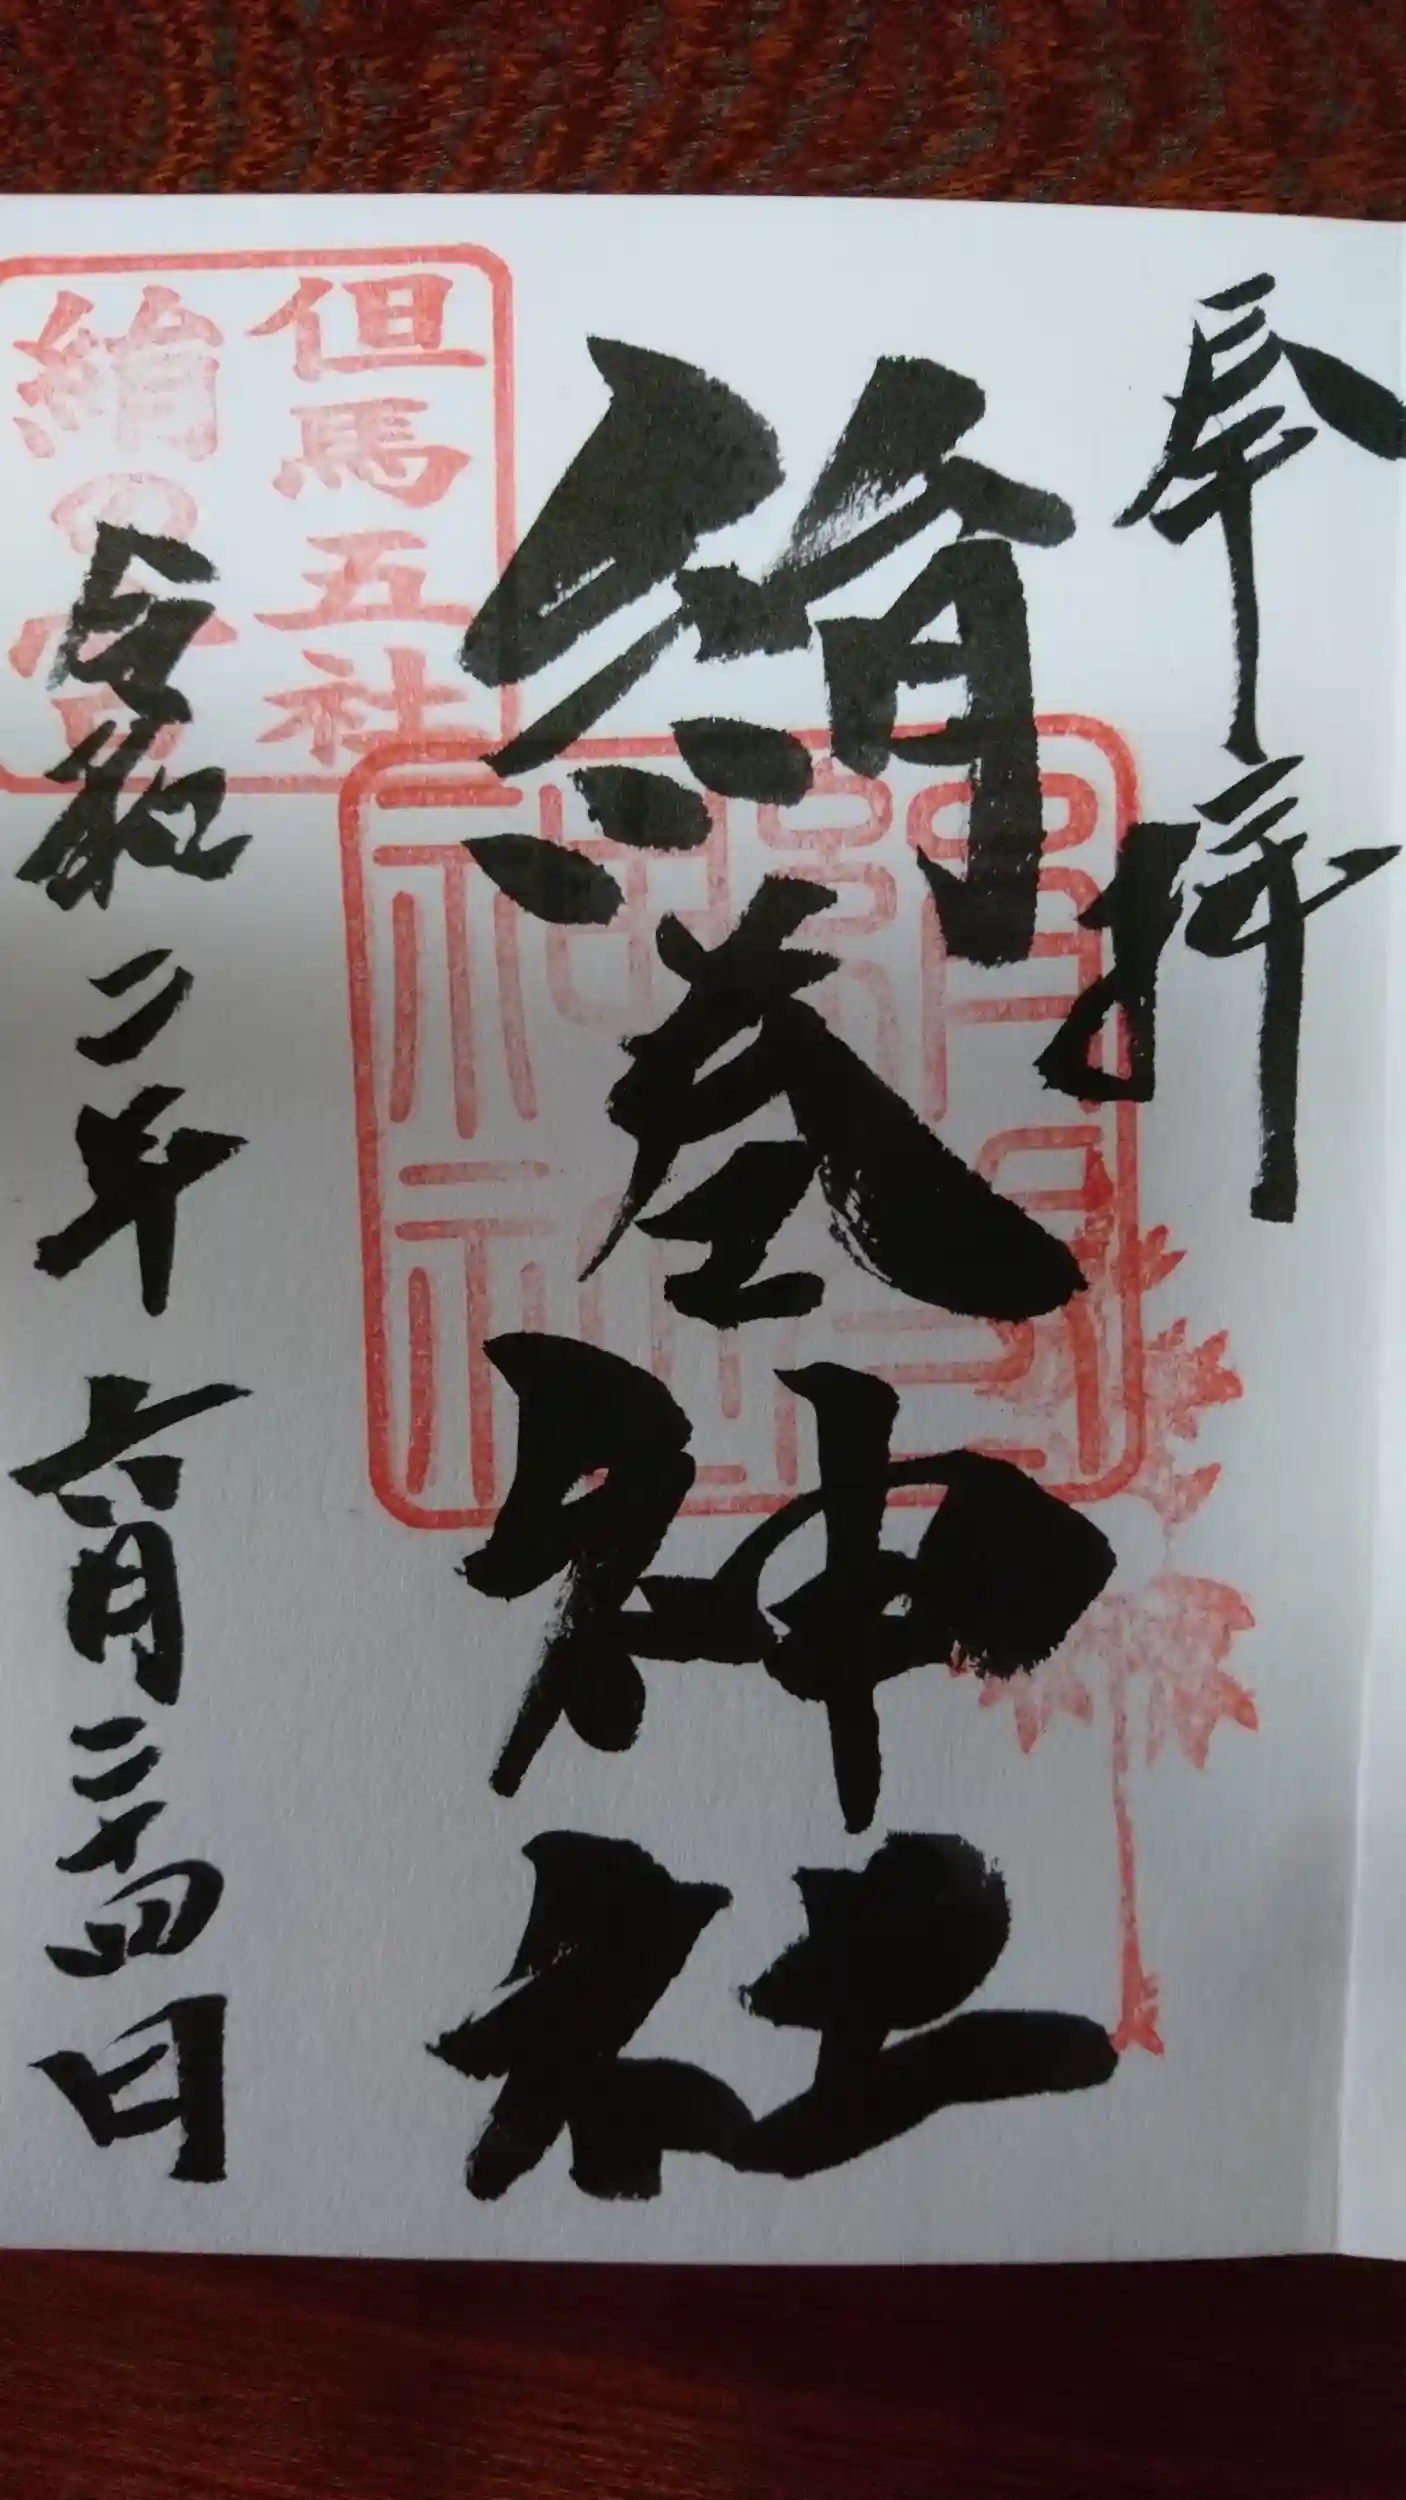 奉拝
絹巻神社
令和二年六月二十四日
但馬五社
絹の宮
絹巻神社